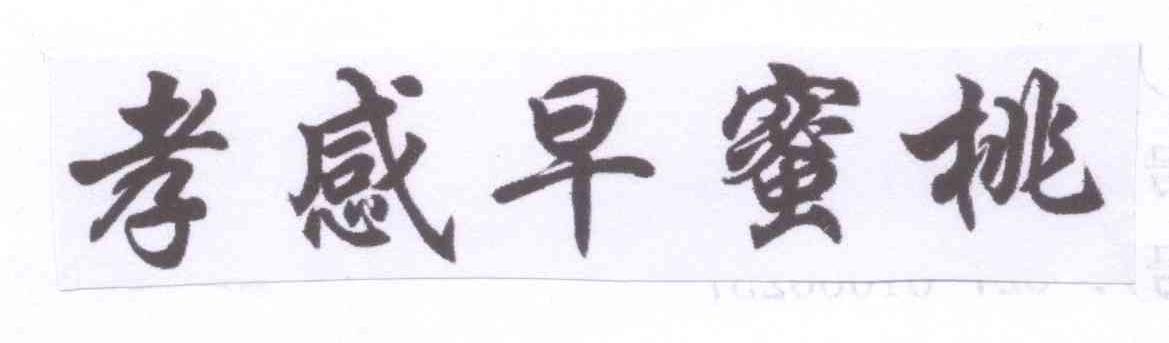 孝感早蜜桃